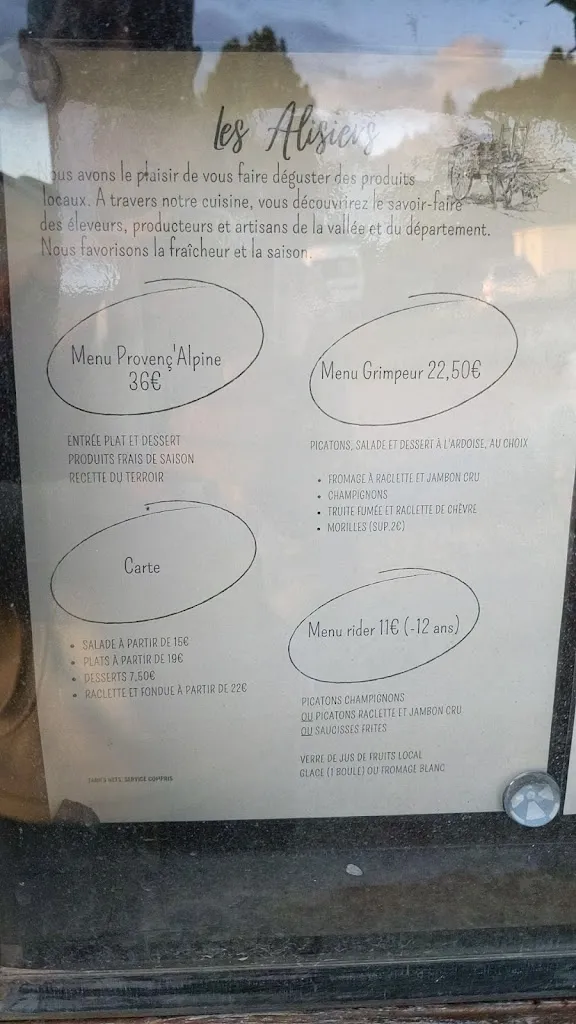 les Alisiers
ous avons le plaisir de vous faire déguster des produits
locaux. A travers notre cuisine, vous découvrirez le savoir-faire
des éleveurs, producteurs et artisans de la vallée et du département.
Nous favorisons la fraîcheur et la saison.
Menu Provenç'Alpine
36€
ENTRÉE PLAT ET DESSERT
PRODUITS FRAIS DE SAISON
RECETTE DU TERROIR
Carte
• SALADE À PARTIR DE 15€
• PLATS À PARTIR DE 19€
• DESSERTS 7,50€
• RACLETTE ET FONDUE À PARTIR DE 22€
Menu Grimpeur 22,50€
PICATONS, SALADE ET DESSERT À L'ARDOISE, AU CHOIX
• FROMAGE À RACLETTE ET JAMBON CRU
• CHAMPIGNONS
• TRUITE FUMÉE ET RACLETTE DE CHÈVRE
• MORILLES (SUP.2€)
Menu rider 11€ (-12 ans)
PICATONS CHAMPIGNONS
OU PICATONS RACLETTE ET JAMBON CRU
OU SAUCISSES FRITES
VERRE DE JUS DE FRUITS LOCAL
GLACE (1 BOULE) OU FROMAGE BLANC
NETS, SERVICE COMPRIS